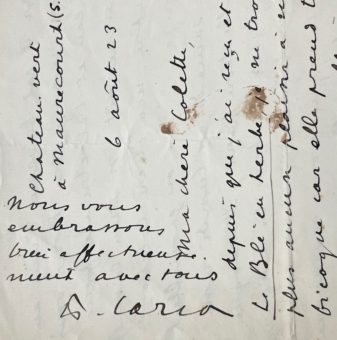 Chateau vert
à Maurecourt (S.
6 août 23
Ma chère Colette,
depuis que j'ai reçu et
Le Blé en herbe je me tro
plus aucun plaisir à
bicoque car elle prend t
Nous vous
embrassons
bien affectueuse-
ment avec tous
F. Carco